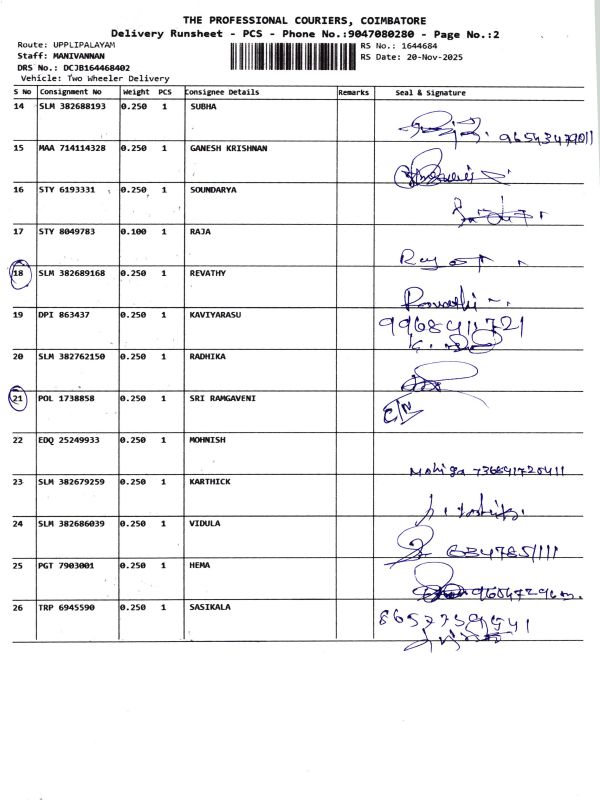 THE PROFESSIONAL COURIERS, COIMBATORE
Delivery Runsheet - PCS - Phone No.:9047080280 - Page No.:2
Route: UPPLIPALAYAM RS No.: 1644684
Staff: MANIVANNAN RS Date: 20-Nov-2025
DRS No.: DCJB164468402
Vehicle: Two Wheeler Delivery
S No Consignment No Weight PCS Consignee Details Remarks Seal & Signature
14 SLM 382688193 0.250 1 SUBHA
15 MAA 714114328 0.250 1 GANESH KRISHNAN
16 STY 6193331 0.250 1 SOUNDARYA
17 STY 8049783 0.100 1 RAJA
18 SLM 382689168 0.250 1 REVATHY
Revathi
19 DPI 863437 0.250 1 KAVIYARASU
9968411721
20 SLM 382762150 0.250 1 RADHIKA
21 POL 1738858 0.250 1 SRI RAMGAVENI
22 EDQ 25249933 0.250 1 MOHNISH
23 SLM 382679259 0.250 1 KARTHICK
24 SLM 382686039 0.250 1 VIDULA
25 PGT 7903001 0.250 1 HEMA
26 TRP 6945590 0.250 1 SASIKALA